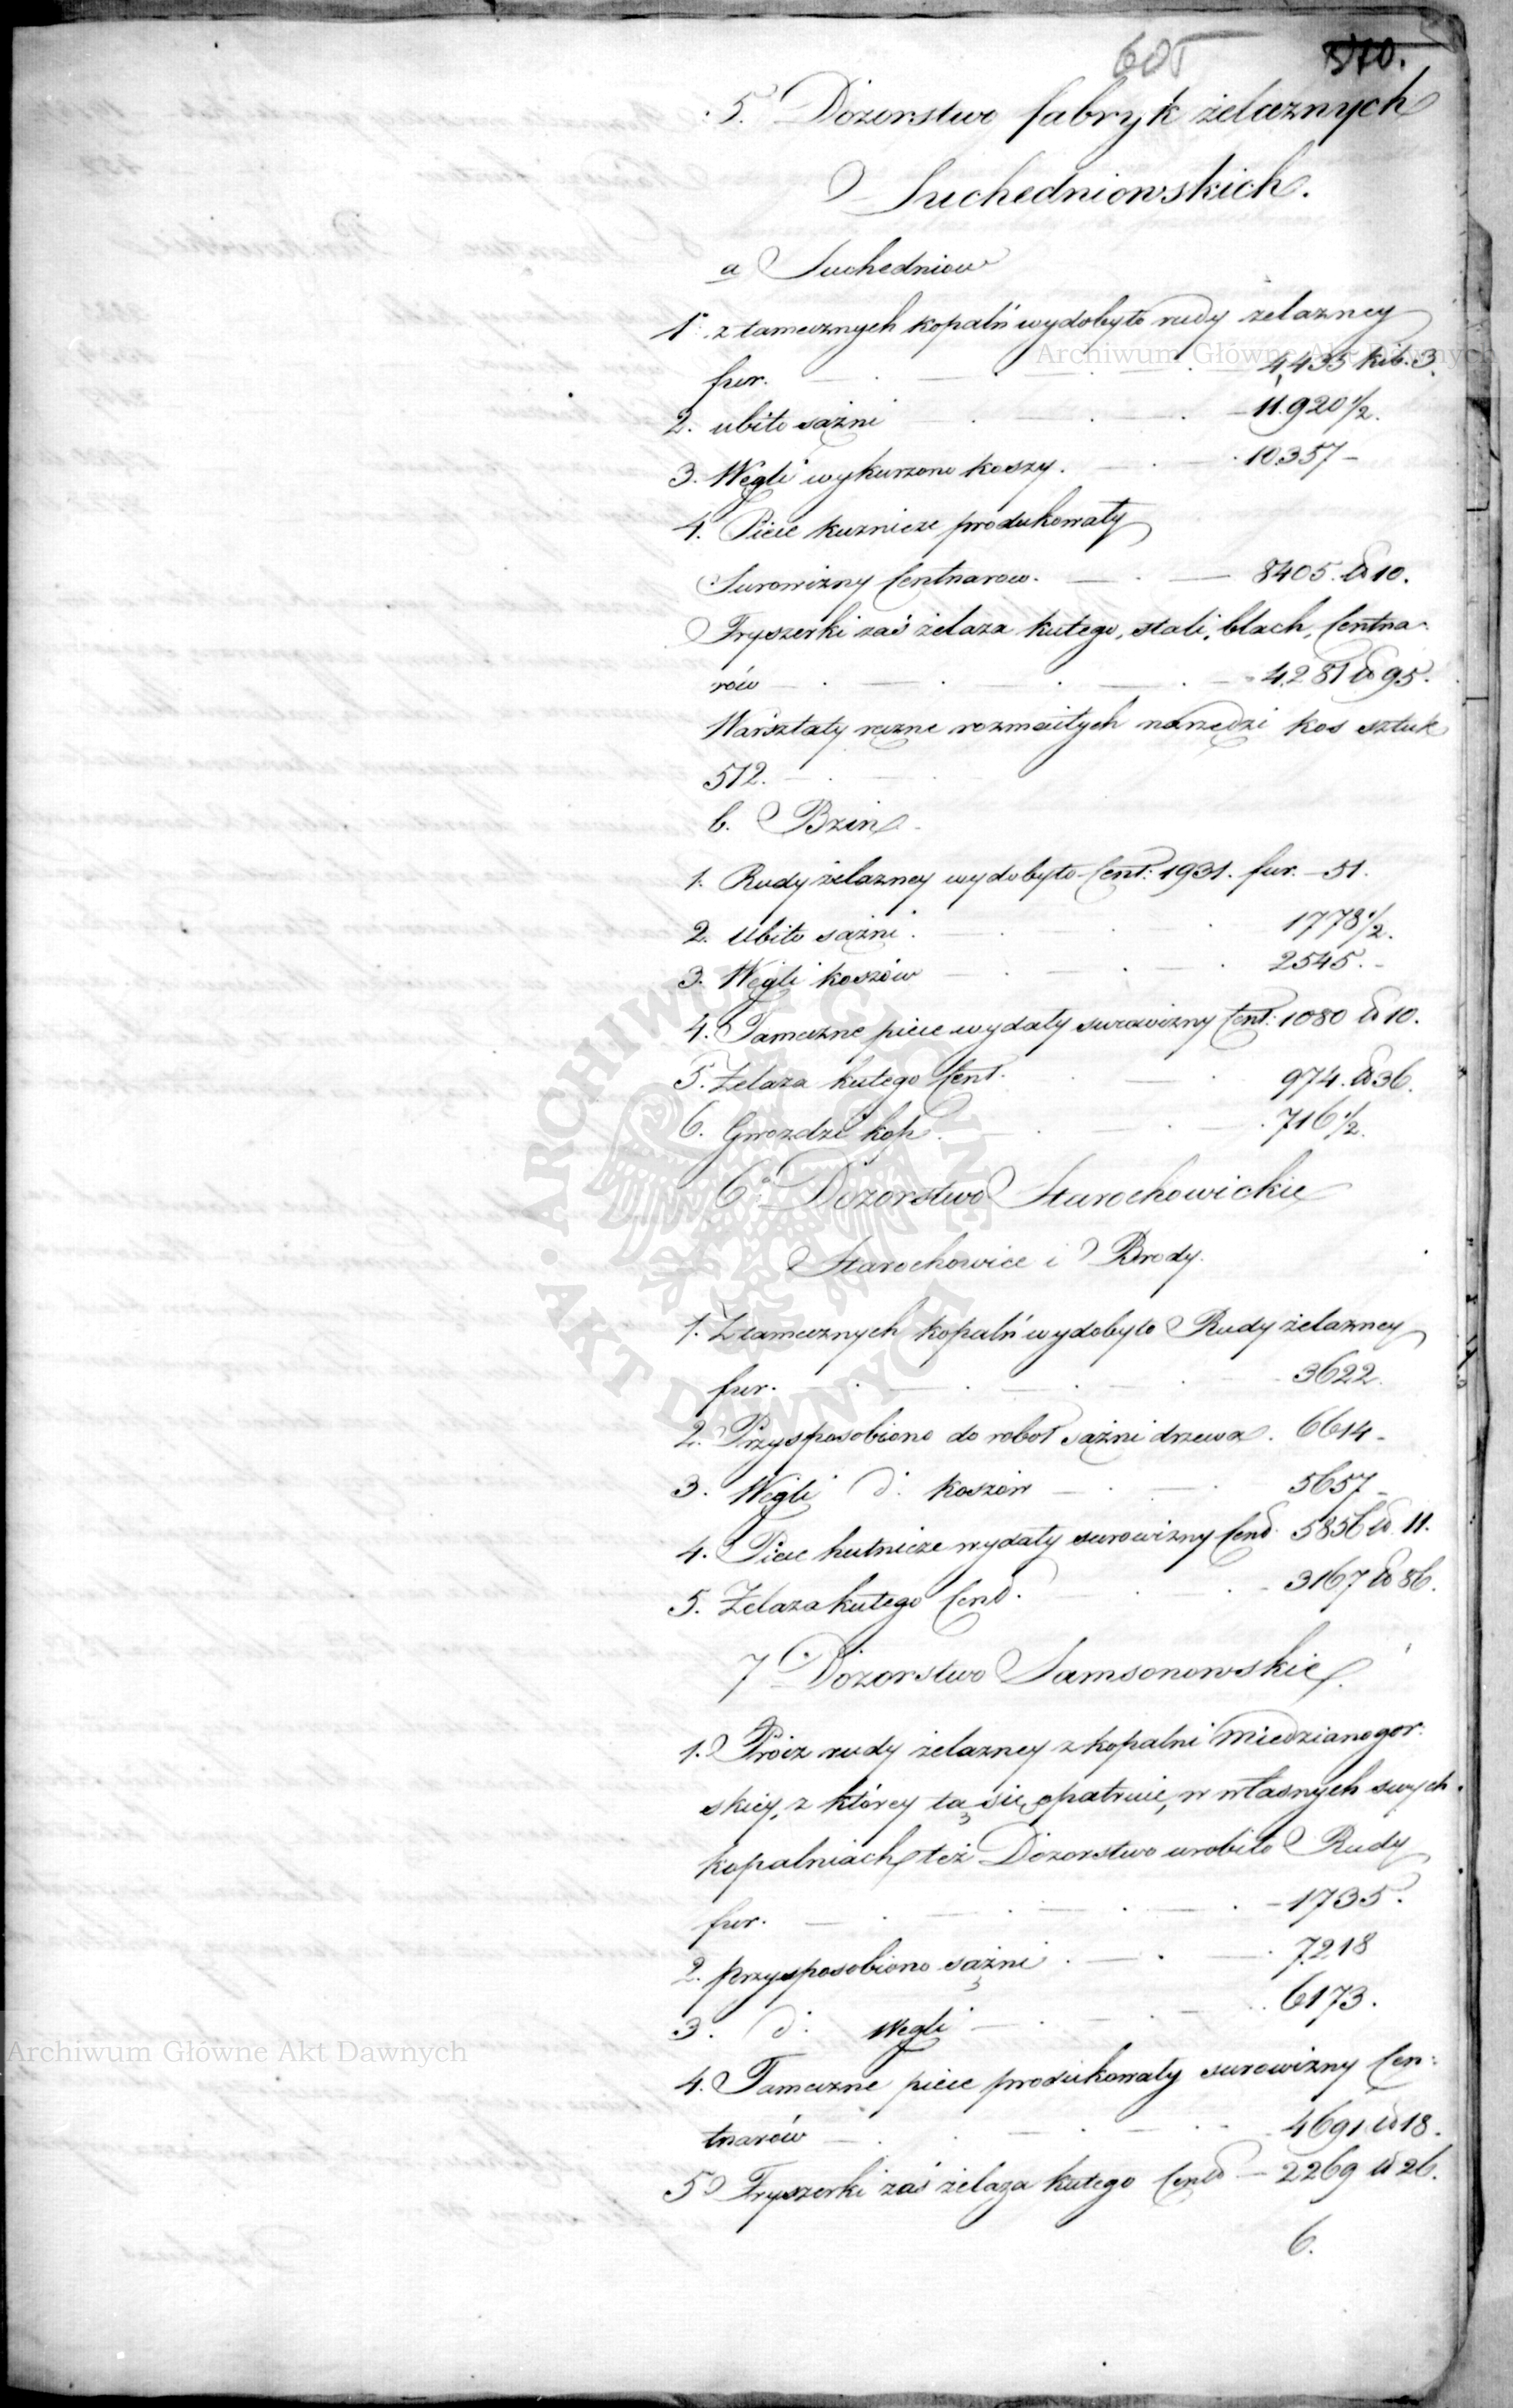 605 570.
5. Dozorstwo fabryk żelaznych
Suchedniowskich.
a Suchedniow
1. z tamecznych kopalń wydobyto rudy żelazney
fur. 4,435 kib. 3.
2. ubito sążni 11.920 1/2.
3. Węgli wykurzono koszy. 10357 -
4. Piece kuznicze produkowały
Surowizny Centnarow. 8405. ℔ 10.
Fryszerki zaś żelaza kutego, stali, blach, Centna-
rów 4281 ℔ 95.
Warsztaty rczne rozmaitych narzędzi kos sztuk
512.
b. Bzin
1. Rudy żelazney wydobyto Cent: 1931. fur. - 51.
2. Ubito sążni. 1778 1/2.
3. Węgli koszów 2545. -
4. Tameczne piece wydały surowizny Cent: 1080 ℔ 10.
5. Żelaza kutego Cent. 974. ℔ 36.
6. Gwozdzi kop. 716 1/2.
6. Dozorstwo Starochowickie
Starochowice i Brody.
1. Z tamecznych kopalń wydobyto Rudy żelazney
fur. 3622.
2. Przysposobiono do robot sążni drzewa. 6614 -
3. Węgli d. koszów 5657 -
4. Piece hutnicze wydały surowizny Cent. 5856 ℔ 11.
5. Żelaza kutego Cent. 3167 ℔ 86.
7 Dozorstwo Samsonowskie.
1. Prócz rudy żelazney z kopalni Miedzianogor-
skiey, z którey ta się opatruie, w własnych swych
kopalniach też Dozorstwo urobiło Rudy
fur. 1735.
2. przysposobiono sążni. 7218
3. d. Węgli 6173.
4. Tameczne piece produkowały surowizny Cen-
tnarów 4691 ℔ 18.
5 Fryszerki zaś żelaza kutego Cent - 2269 ℔ 26.
6.
Archiwum Główne Akt Dawnych
Archiwum Główne Akt Dawnych
ARCHIWUM GŁÓWNE · AKT DAWNYCH ·